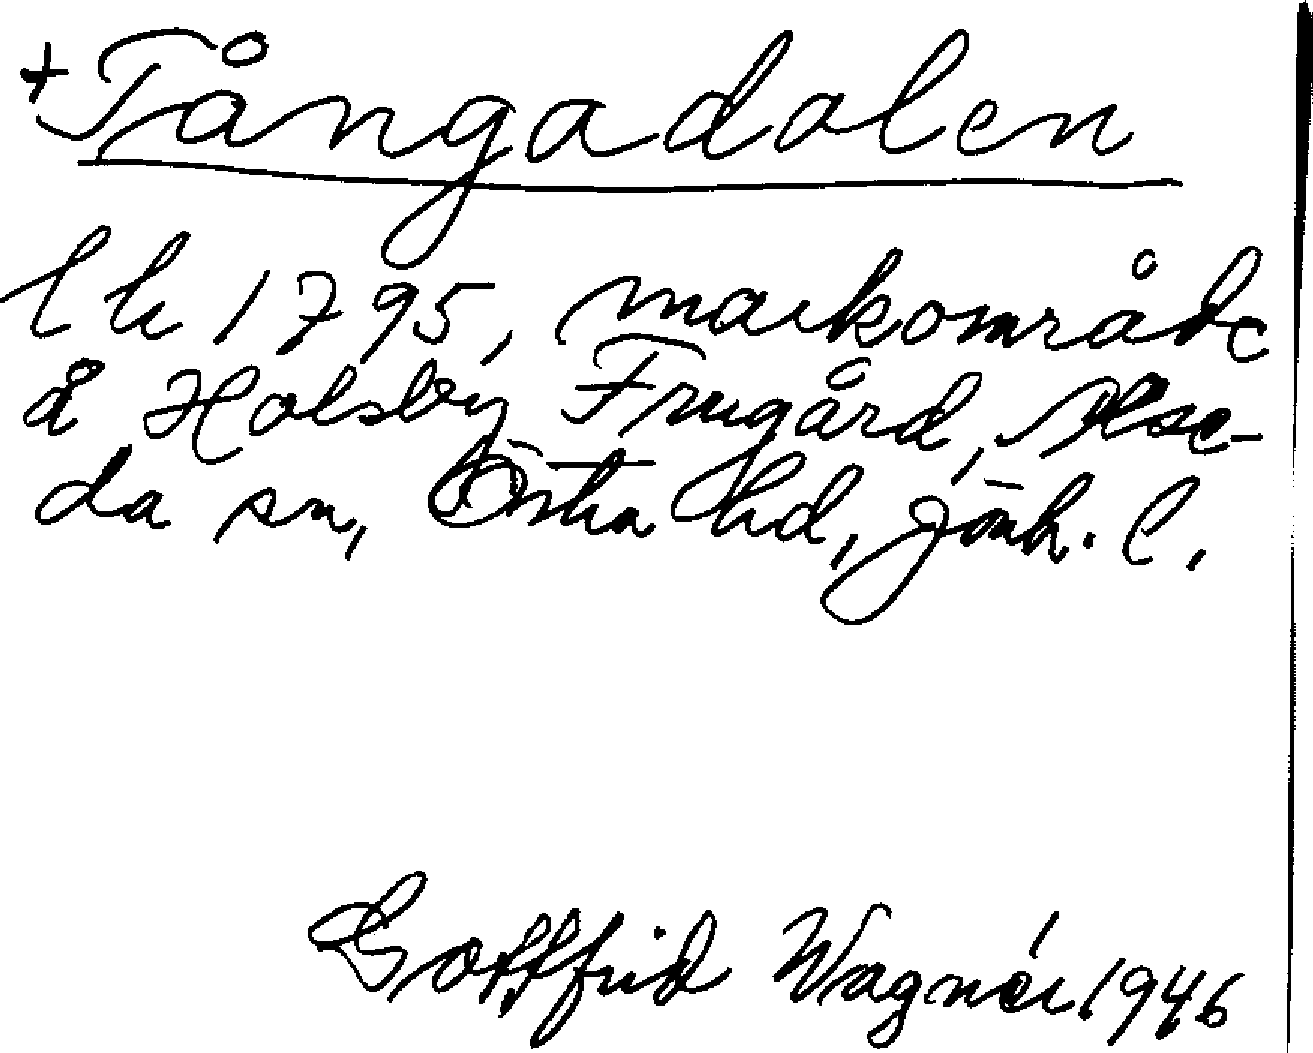 + Tångadalen
l k 1795, markområde
å Holsby Frugård, Alse-
da sn, Östra hd, Jönk. l.
Gottfrid Wagnér 1946